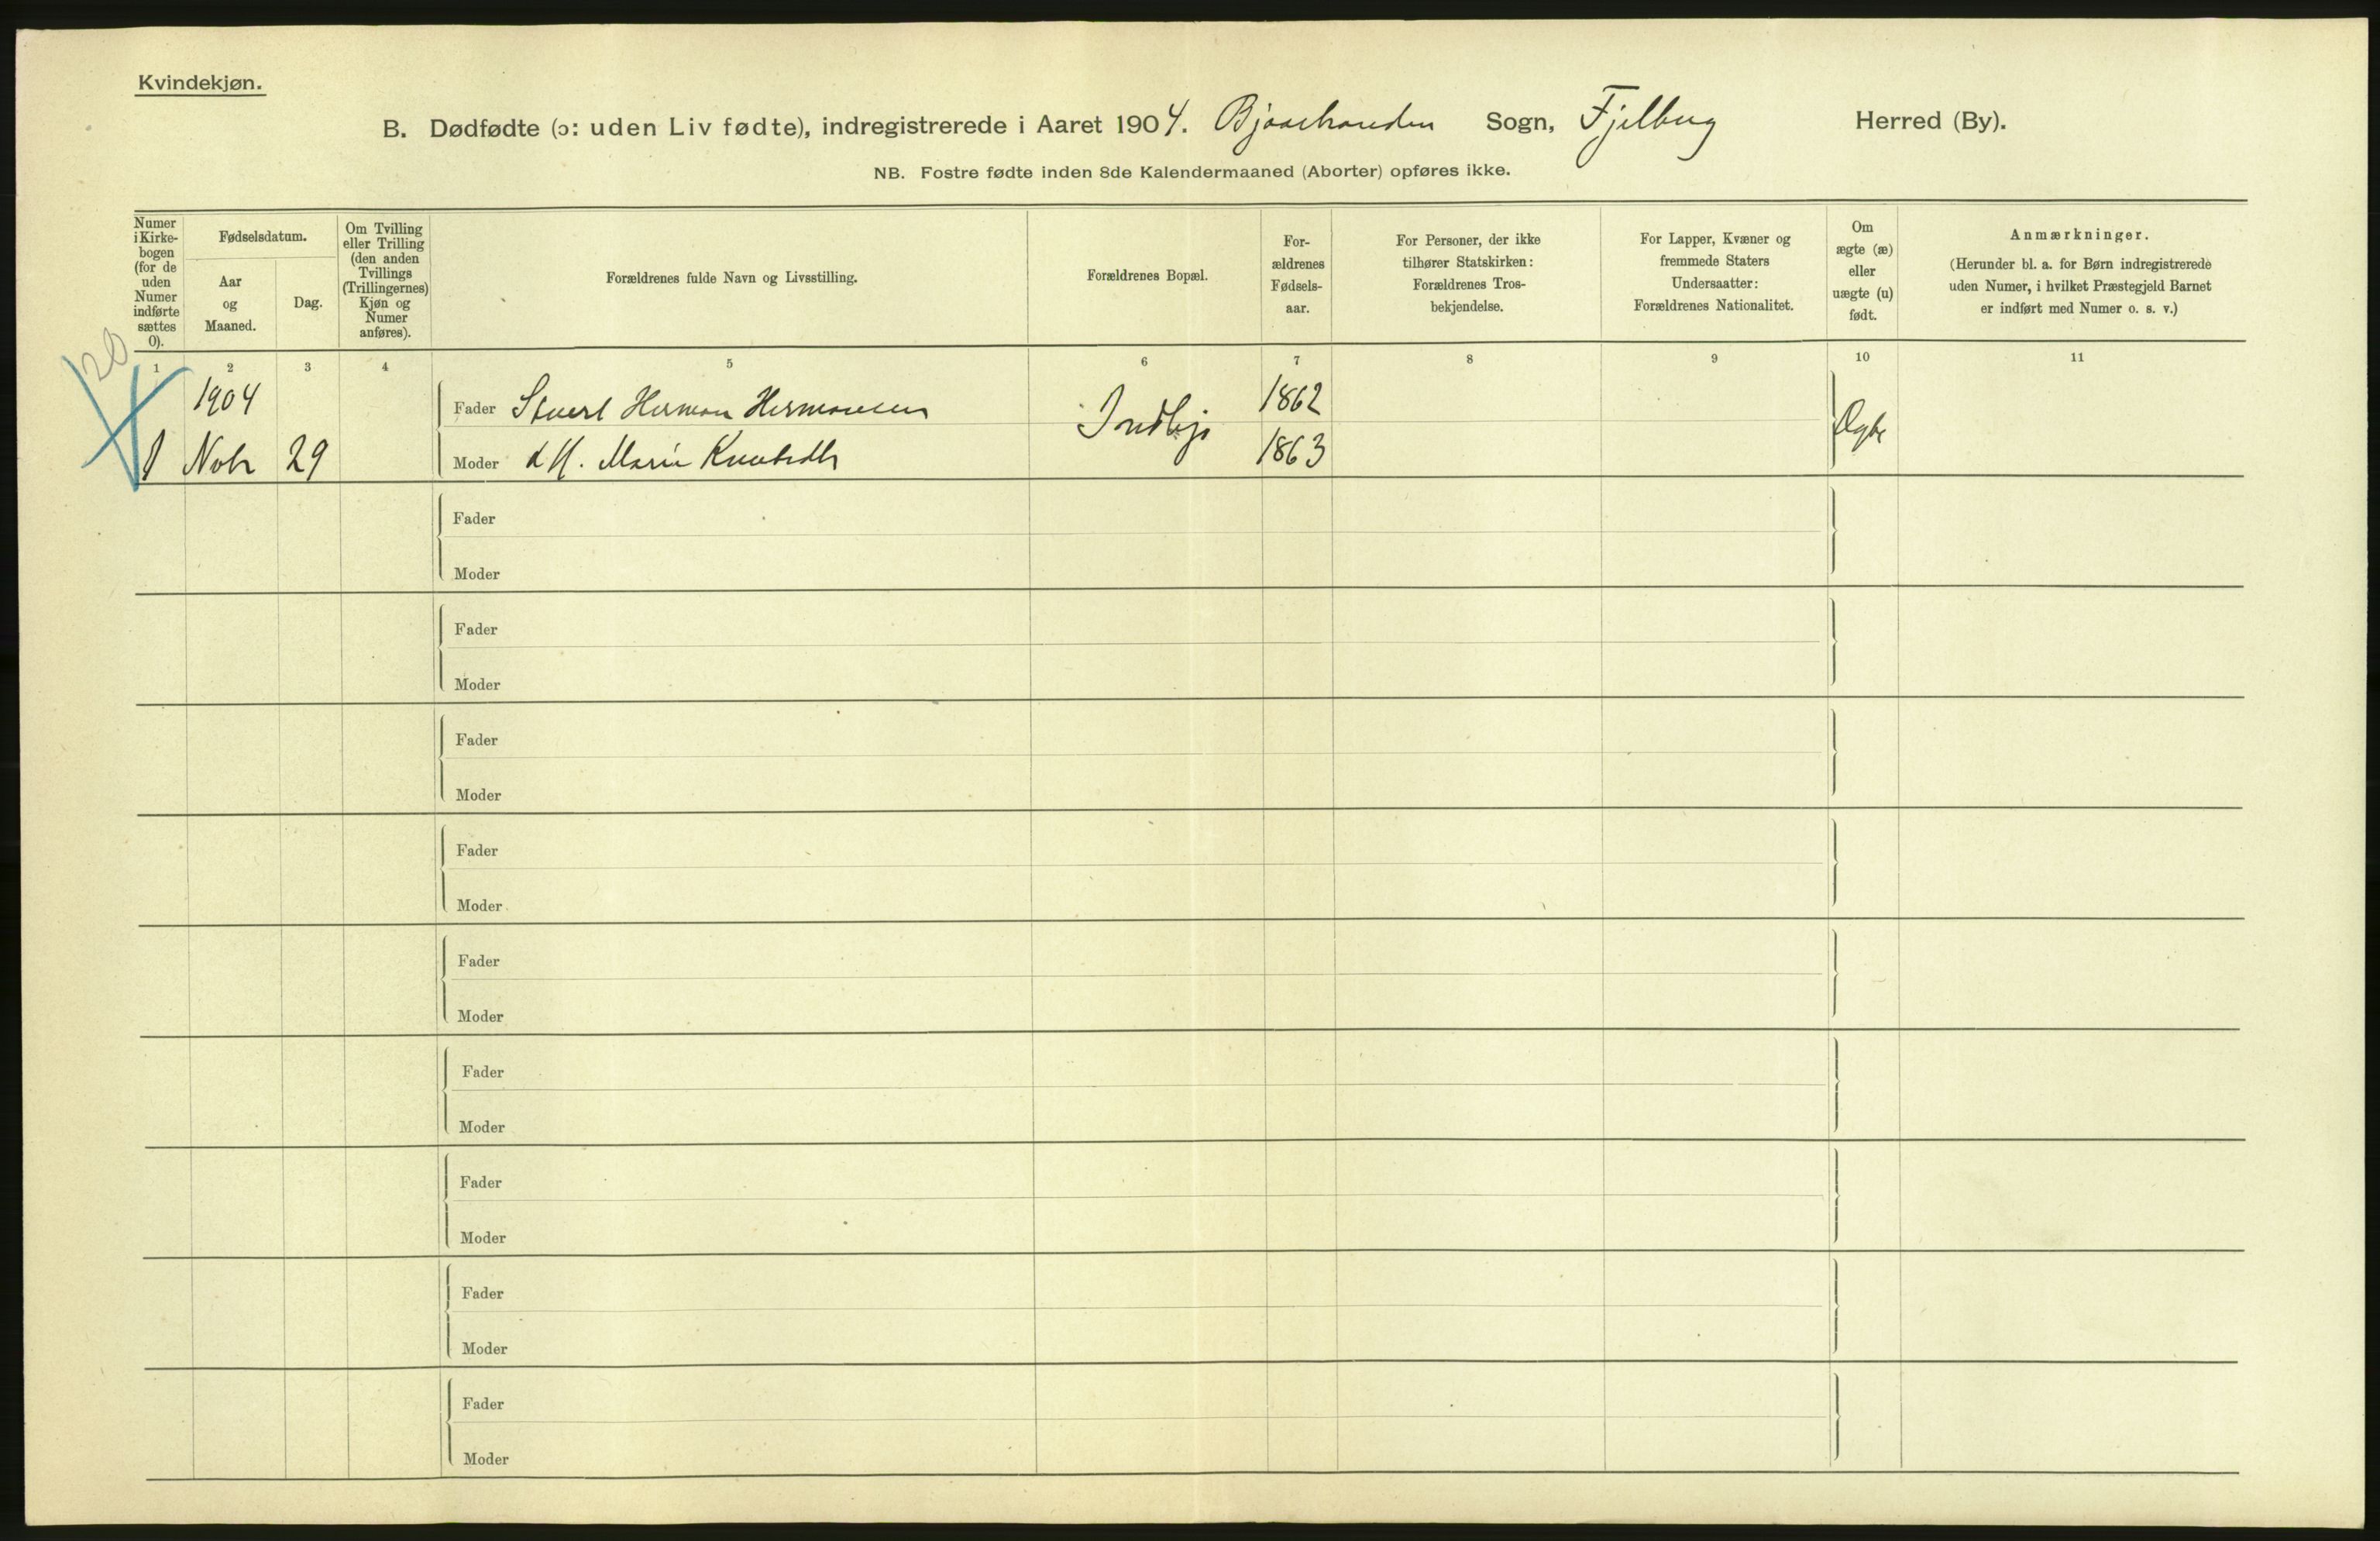 Kvindekjøn.
B. Dødfødte (ɔ: uden Liv fødte), indregistrerede i Aaret 1904. Sogn, Fjelberg Herred (By).
NB. Fostre fødte inden 8de Kalendermaaned (Aborter) opføres ikke.
Numer
i Kirke-
bogen
(for de
uden
Numer
indførte
sættes
0).
Fødselsdatum.
Aar
og
Maaned.
Dag.
Om Tvilling
eller Trilling
(den anden
Tvillings
(Trillingernes)
Kjøn og
Numer
anføres).
Forældrenes fulde Navn og Livsstilling.
Forældrenes Bopæl.
For-
ældrenes
Fødsels-
aar.
For Personer, der ikke
tilhører Statskirken:
Forældrenes Tros-
bekjendelse.
For Lapper, Kvæner og
fremmede Staters
Undersaatter:
Forældrenes Nationalitet.
Om
ægte (æ)
eller
uægte (u)
født.
Anmærkninger.
(Herunder bl. a. for Børn indregistrerede
uden Numer, i hvilket Præstegjeld Barnet
er indført med Numer o. s. v.)
1 2 3 4 5 6 7 8 9 10 11
20
1904
1 Nobr 29
Fader Herman Hermansen
Moder Marie
1862
1863
Ægte
Fader
Moder
Fader
Moder
Fader
Moder
Fader
Moder
Fader
Moder
Fader
Moder
Fader
Moder
Fader
Moder
Fader
Moder